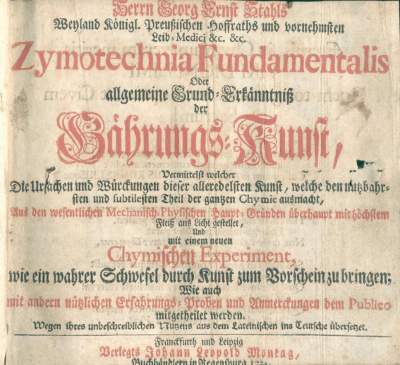 Herrn Georg Ernst Stahls
Weyland Königl. Preußischen Hoffraths und vornehmsten
Leib-Medici &c. &c.
Zymotechnia Fundamentalis
Oder
allgemeine Grund-Erkänntniß
der
Gährungs-Kunst,
Vermittelst welcher
Die Ursachen und Würckungen dieser alleredelsten Kunst, welche den nutzbahr-
sten und subtilesten Theil der gantzen Chymie ausmacht,
Aus den wesentlichen Mechanisch-Physischen Haupt-Gründen überhaupt mit höchstem
Fleiß ans Licht gestellet,
Und
mit einem neuen
Chymischen Experiment,
wie ein wahrer Schwefel durch Kunst zum Vorschein zu bringen;
Wie auch
mit andern nützlichen Erfahrungs-Proben und Anmerckungen dem Publico
mitgetheilet werden.
Wegen ihres unbeschreiblichen Nutzens aus dem Lateinischen ins Teutsche übersetzet.
Franckfurth und Leipzig
Verlegts Johann Leopold Montag,
Buchhändlern in Regenspurg 1734.